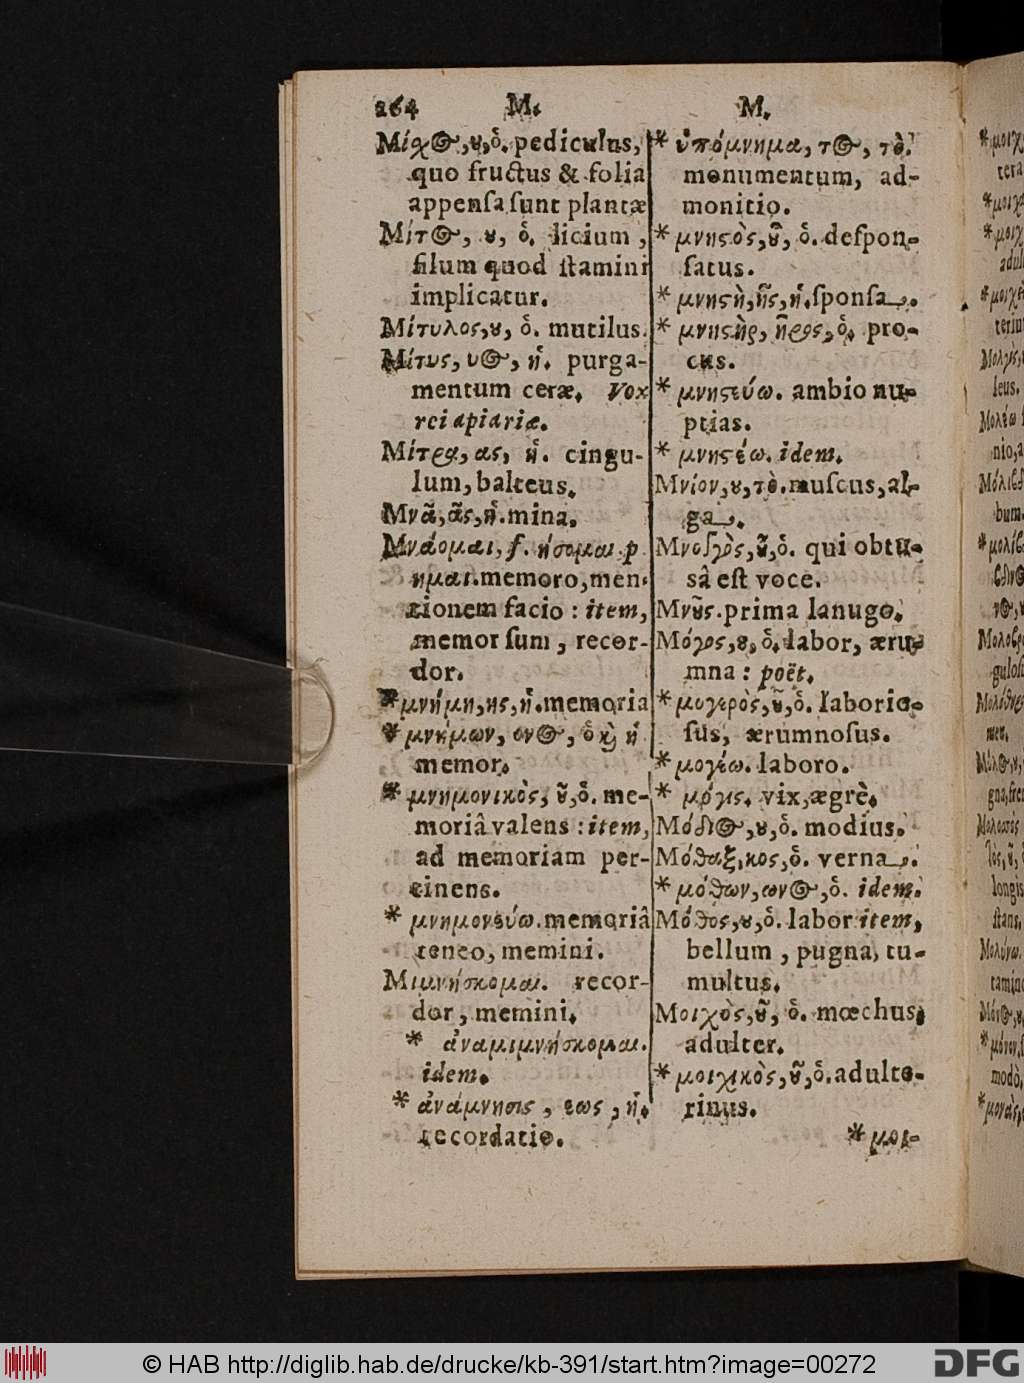 264 M. M.
Μίχος, ου, ὁ. pediculus,
quo fructus & folia
appensa sunt plantæ
Μίτος, ου, ὁ. licium,
filum quod stamini
implicatur.
Μίτυλος, ου, ὁ. mutilus.
Μίτυς, υος, ἡ. purga-
mentum ceræ. Vox
rei apiariæ.
Μίτρα, ας, ἡ. cingu-
lum, balteus.
Μνᾶ, ᾶς, ἡ. mina.
Μνάομαι, f. ήσομαι. p.
ημαι. memoro, men-
tionem facio : item,
memor sum, recor-
dor.
*μνήμη, ης, ἡ. memoria
* μνήμων, ονος, ὁ καὶ ἡ
memor.
* μνημονικὸς, οῦ, ὁ. me-
moriâ valens : item,
ad memoriam per-
tinens.
* μνημονεύω. memoriâ
teneo, memini.
Μιμνήσκομαι. recor-
dor, memini.
* ἀναμιμνήσκομαι.
idem.
* ἀνάμνησις, εως, ἡ.
recordatio.
* ὑπόμνημα, τος, τὸ.
monumentum, ad-
monitio.
* μνηστὸς, οῦ, ὁ. despon-
satus.
* μνηστὴ, ῆς, ἡ. sponsa.
* μνηστὴρ, ῆρος, ὁ. pro-
cus.
* μνηστεύω. ambio nu-
ptias.
* μνηστέω. idem.
Μνίον, ου, τὸ. muscus, al-
ga.
Μνοσγὸς, οῦ, ὁ. qui obtu-
sâ est voce.
Μνοῦς. prima lanugo.
Μόγος, ου, ὁ. labor, æru-
mna : poët.
* μογερὸς, οῦ, ὁ. laborio-
sus, ærumnosus.
* μογέω. laboro.
* μόγις. vix, ægrè.
Μόδιος, ου, ὁ. modius.
Μόθαξ, κος, ὁ. verna.
* μόθων, ωνος, ὁ. idem.
Μόθος, ου, ὁ. labor item,
bellum, pugna, tu-
multus.
Μοιχὸς, οῦ, ὁ. mœchus,
adulter.
* μοιχικὸς, οῦ, ὁ. adulte-
rinus.
* μοι-
© HAB http://diglib.hab.de/drucke/kb-391/start.htm?image=00272
DFG